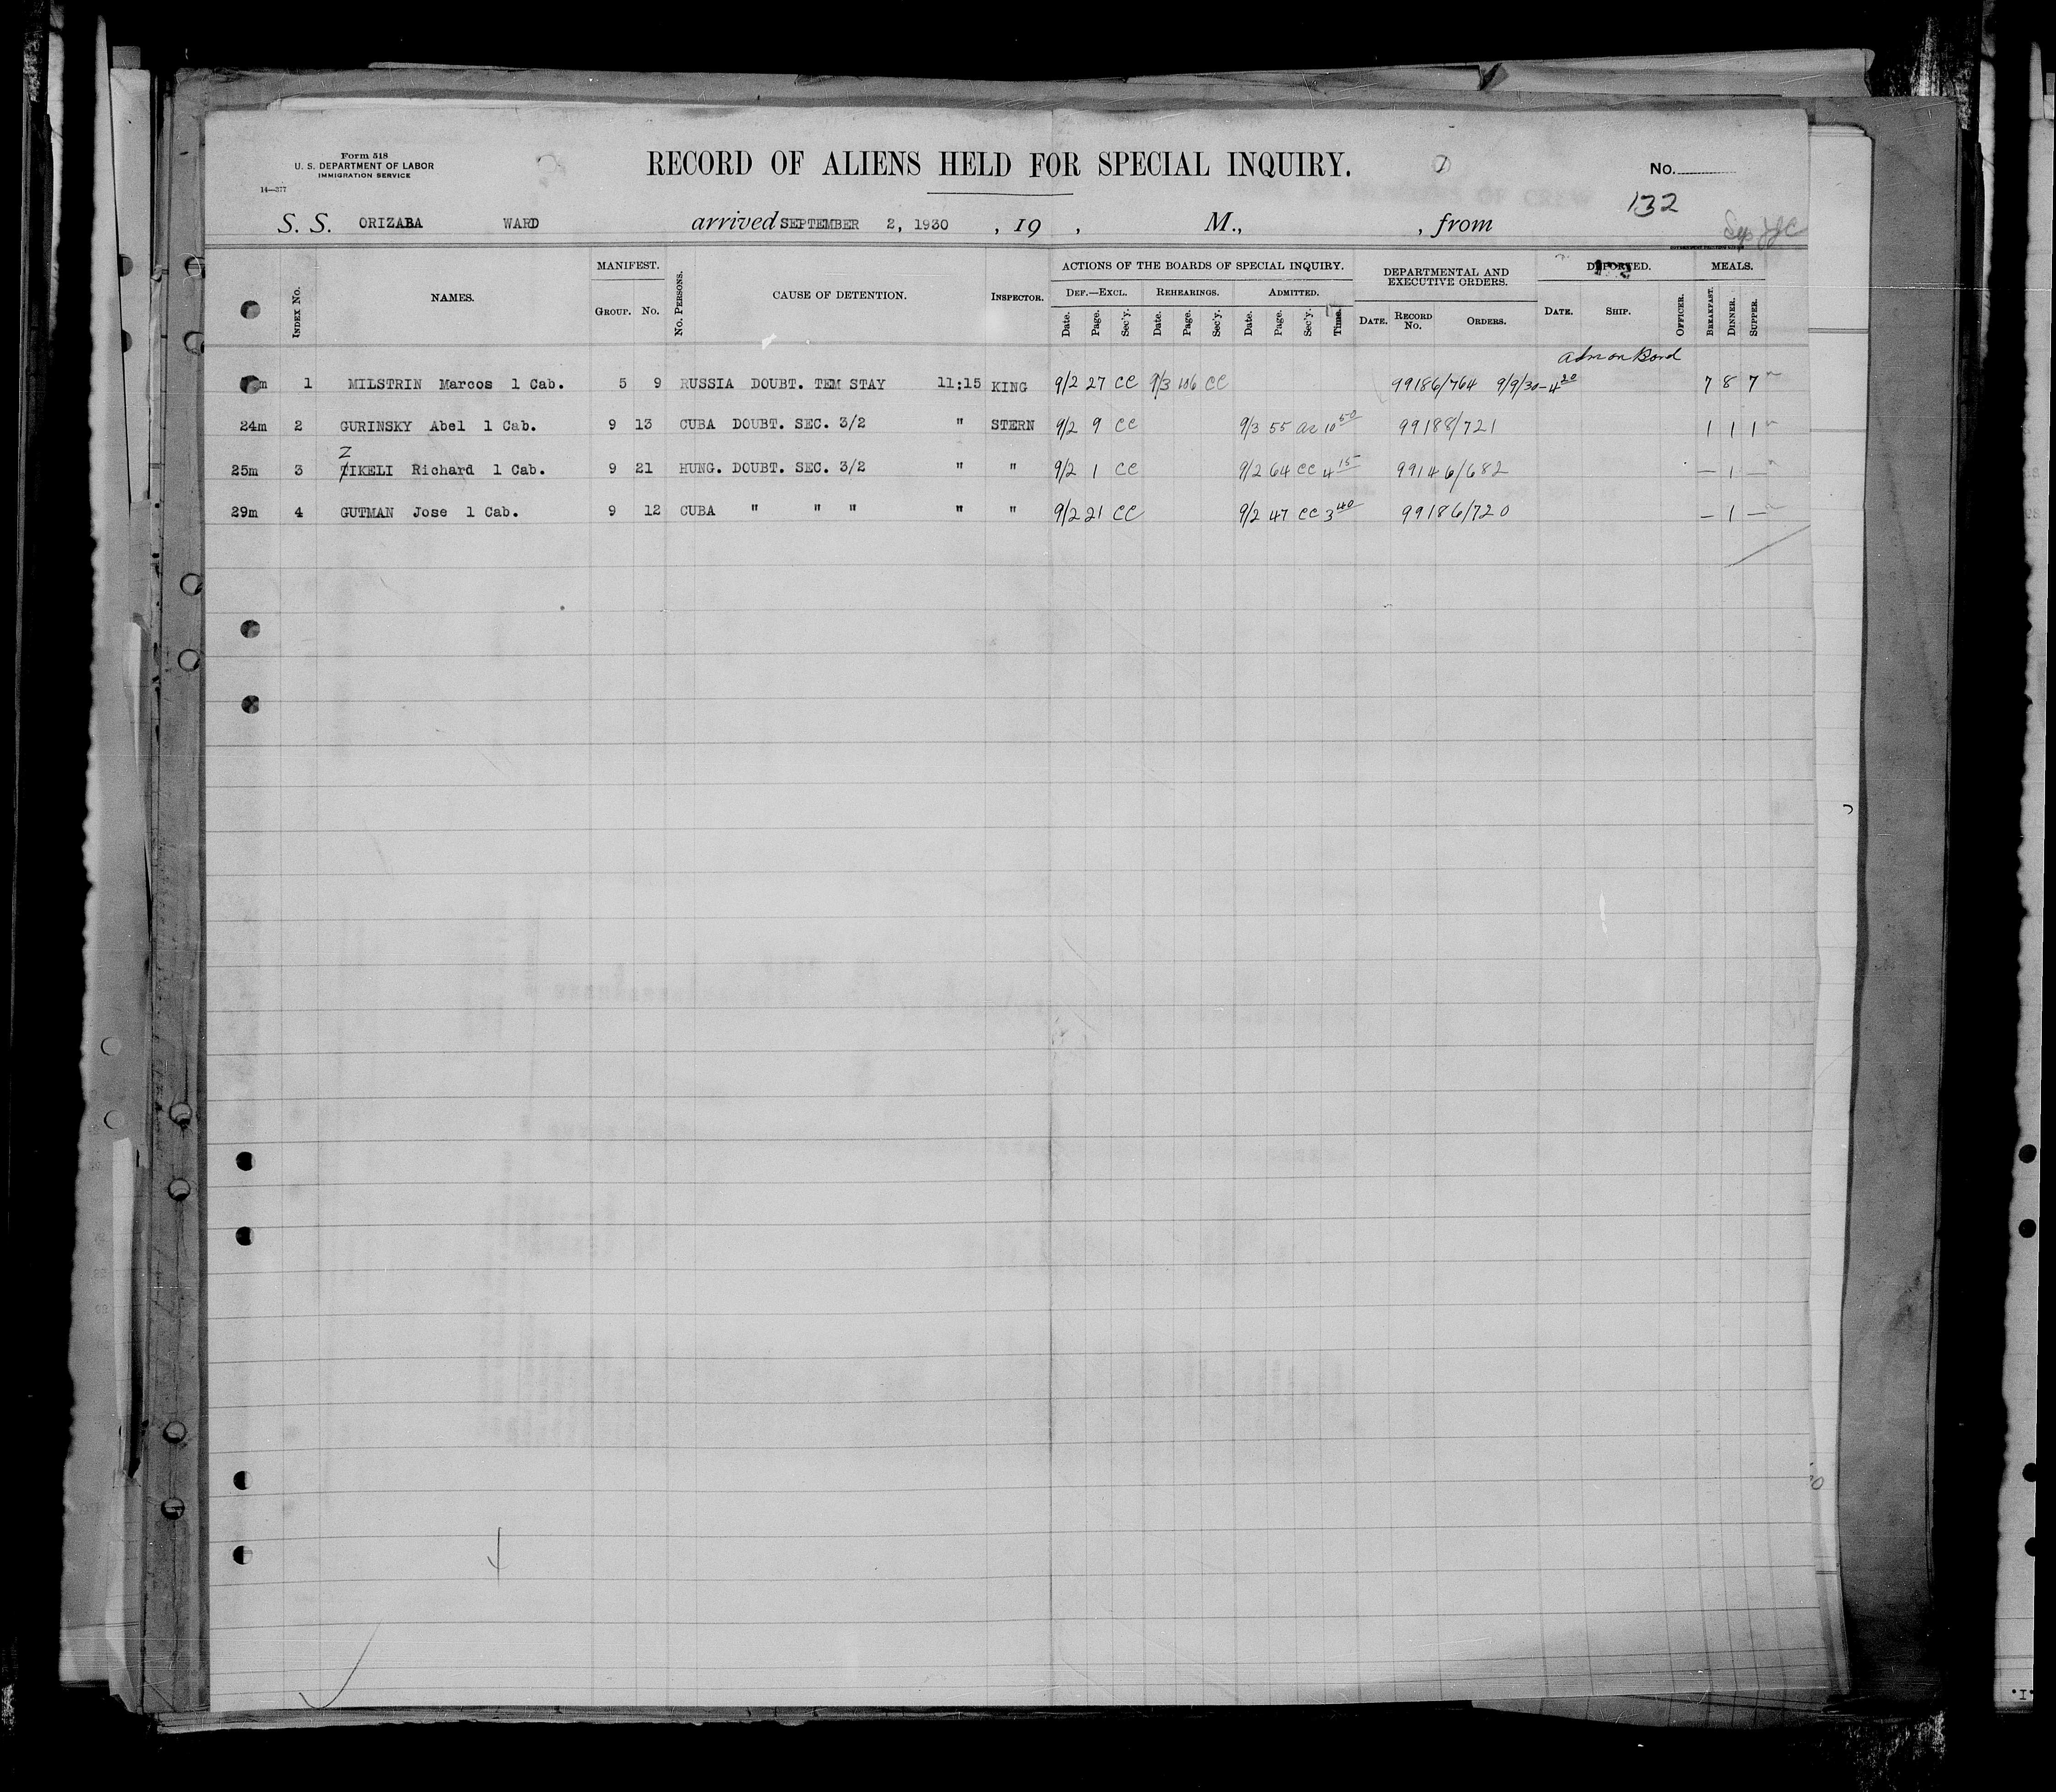 Form 518
U. S. DEPARTMENT OF LABOR
IMMIGRATION SERVICE
14—377
RECORD OF ALIENS HELD FOR SPECIAL INQUIRY.
No.
132
S. S. ORIZABA WARD arrived SEPTEMBER 2, 1930 , 19 , M., , from
INDEX No. NAMES. MANIFEST. GROUP. No. No. PERSONS. CAUSE OF DETENTION. INSPECTOR. ACTIONS OF THE BOARDS OF SPECIAL INQUIRY. DEF.—EXCL. Date. Page. Sec'y. REHEARINGS. Date. Page. Sec'y. ADMITTED. Date. Page. Sec'y. Time. DEPARTMENTAL AND EXECUTIVE ORDERS. DATE. RECORD No. ORDERS. DEPORTED. DATE. SHIP. OFFICER. MEALS. BREAKFAST. DINNER. SUPPER.
Adm on Bond
m 1 MILSTRIN Marcos 1 Cab. 5 9 RUSSIA DOUBT. TEM STAY 11:15 KING 9/2 27 CC 9/3 106 CC 99186/764 9/9/30-4 20 7 8 7
24m 2 GURINSKY Abel 1 Cab. 9 13 CUBA DOUBT. SEC. 3/2 " STERN 9/2 9 CC 9/3 55 10 50 99188/721 1 1 1
Z
25m 3 IKELI Richard 1 Cab. 9 21 HUNG. DOUBT. SEC. 3/2 " " 9/2 1 CC 9/2 64 CC 4 15 99146/682 — 1 —
29m 4 GUTMAN Jose 1 Cab. 9 12 CUBA " " " " " 9/2 21 CC 9/2 47 CC 3 40 99186/720 — 1 —